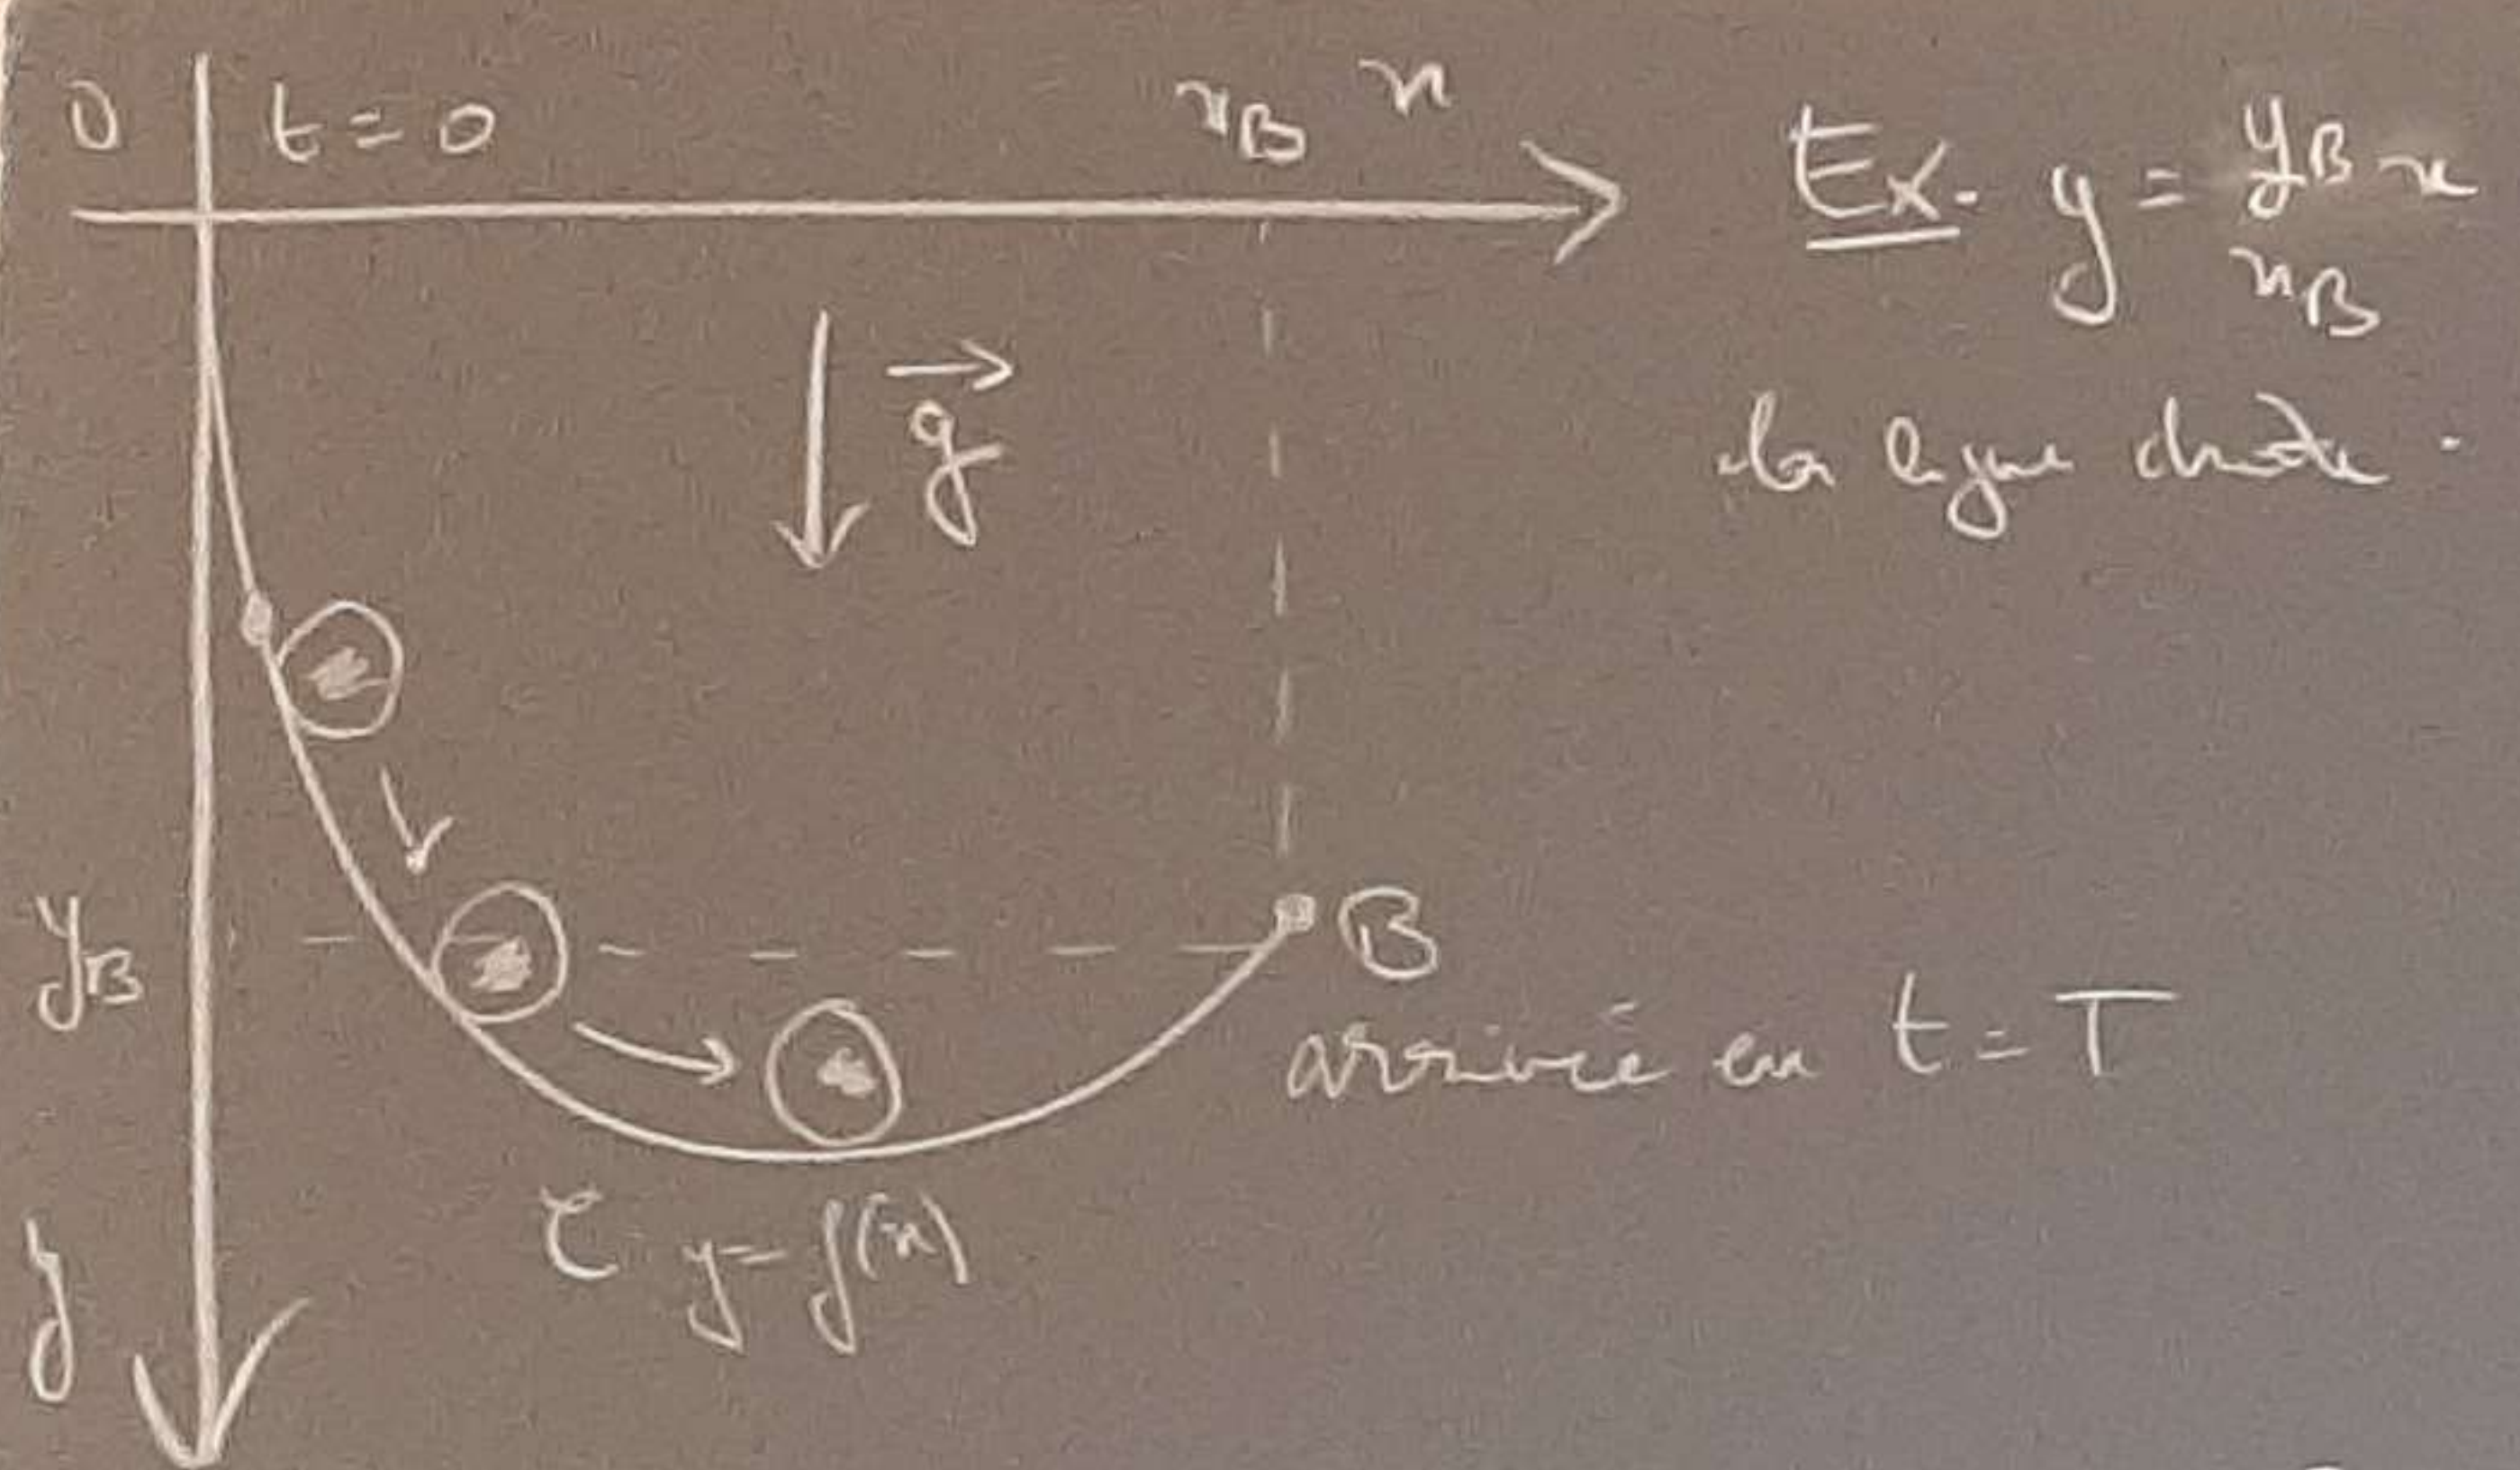 0 t = 0 x_B x
Ex. y = y_B x / x_B
la ligne droite.
g⃗
y_B
B
arrivée en t = T
C y = f(x)
y